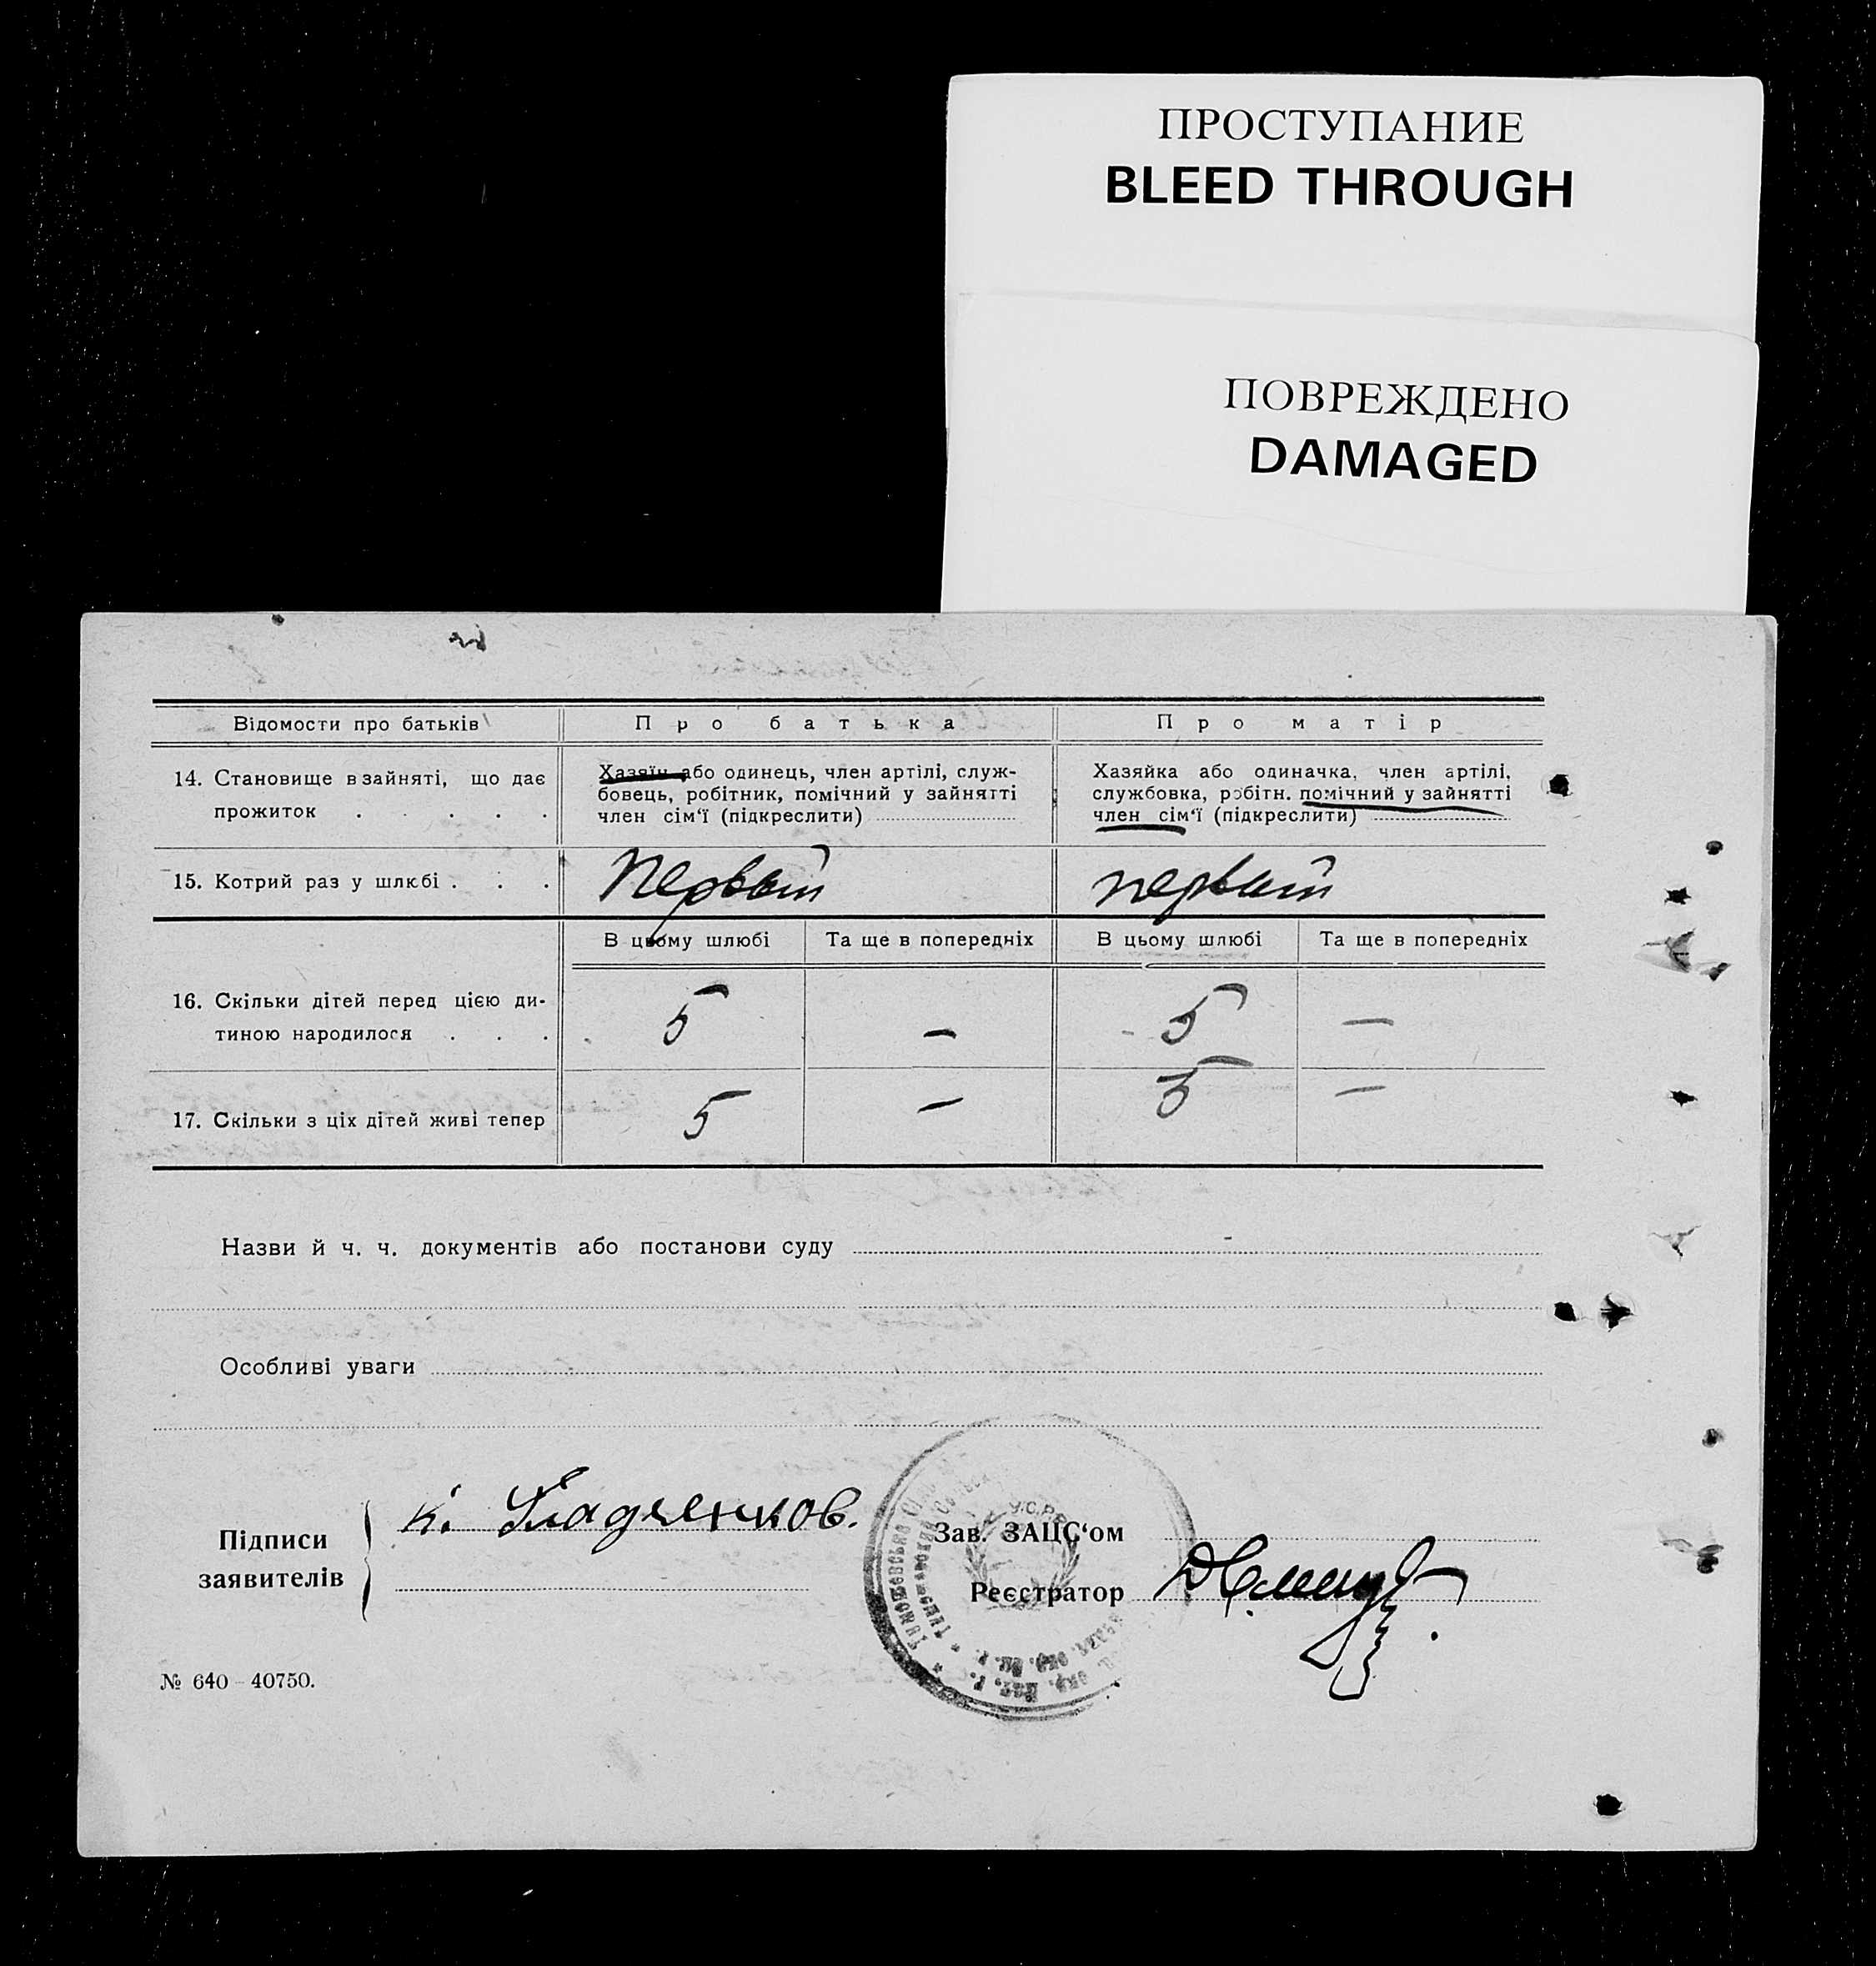 ПРОСТУПАНИЕ
BLEED THROUGH
ПОВРЕЖДЕНО
DAMAGED
Відомости про батьків
Про батька
Про матір
14. Становище в зайняті, що дає
прожиток . . . . .
Хазяїн або одинець, член артілі, служ-
бовець, робітник, помічний у зайнятті
член сім'ї (підкреслити)
Хазяйка або одиначка, член артілі,
службовка, робітн. помічний у зайнятті
член сім'ї (підкреслити)
15. Котрий раз у шлюбі . . .
Первый
первый
В цьому шлюбі
Та ще в попередніх
В цьому шлюбі
Та ще в попередніх
16. Скільки дітей перед цією ди-
тиною народилося . . .
5 — 5 —
17. Скільки з ціх дітей живі тепер
5 — 5 —
Назви й ч. ч. документів або постанови суду
Особливі уваги
Підписи
заявителів
К. Гладченков.
Зав. ЗАЦС'ом
Реєстратор
У.С.Р.Р.
№ 640 – 40750.